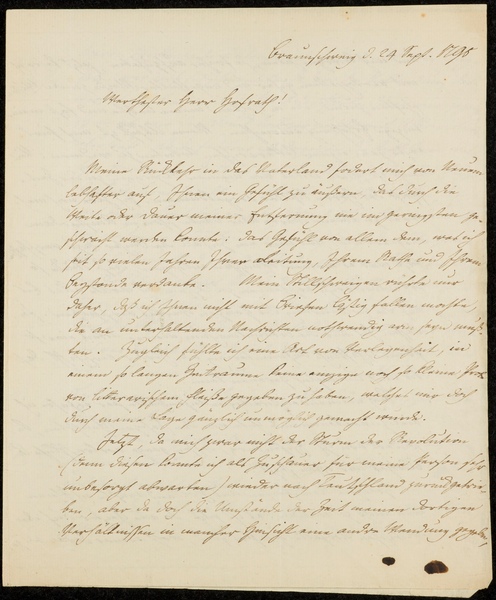 Braunschweig d. 24 Sept. 1795
Werthester Herr Hofrath!
Meine Rückkehr in das Vaterland fodert mich von Neuem
lebhafter auf, Ihnen ein Gefühl zu äußern, das durch die
Weite oder Dauer meiner Entfernung nie im geringsten ge-
schwächt werden konnte: das Gefühl von allem dem, was ich
seit so vielen Jahren Ihrer Leitung, Ihrem Rathe und Ihrem
Beystande verdanke. Mein Stillschweigen rührte nur
daher, daß ich Ihnen nicht mit Briefen lästig fallen mochte,
die an unterhaltenden Nachrichten nothwendig arm seyn muß-
ten. Zugleich fühlte ich eine Art von Verlegenheit, in
einem so langen Zeitraume keine einzige noch so kleine Probe
von litterarischem Fleiße gegeben zu haben, welches mir doch
durch meine Lage gänzlich unmöglich gemacht wurde.
Jetzt, da mich zwar nicht der Sturm der Revolution
(denn diesen konnte ich als Zuschauer für meine Person sehr
unbesorgt abwarten) wieder nach Deutschland zurückgetrie-
ben, aber da doch die Umstände der Zeit meinen dortigen
Verhältnissen in mancher Hinsicht eine andre Wendung gegeben,